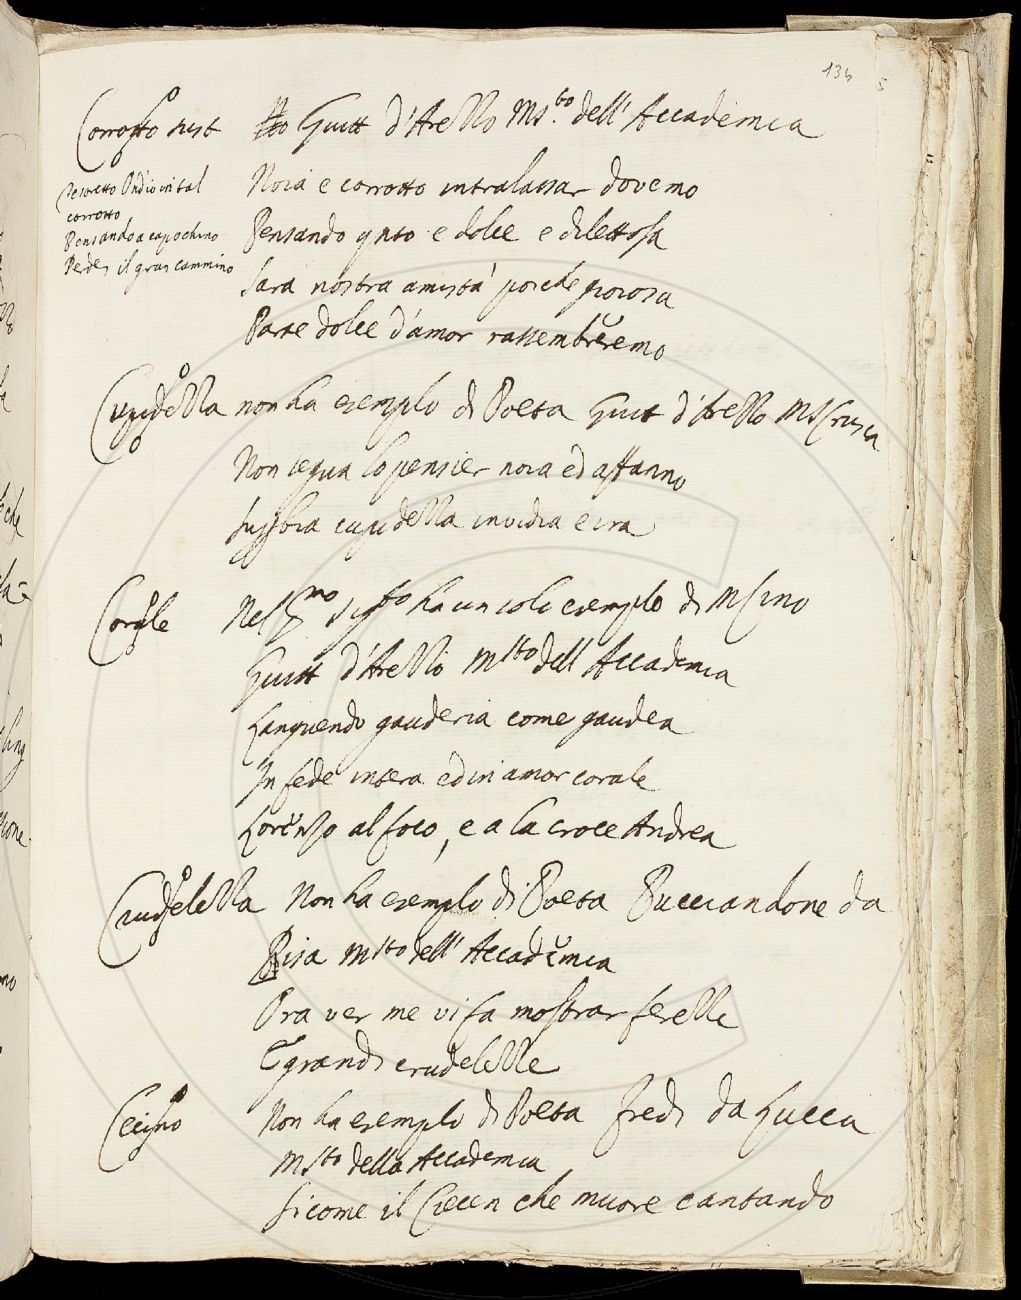 134
Corrotto sust Guitt d'Arezzo Ms.to dell' Accademia
Noia e corrotto intralassar dovemo
corrotto
Pensando a capo chino
Perdei il gran cammino
Pensando qnto e dolce e dilettosa
Sara nostra amistà poiche gioiosa
Parte dolce d'amor rassembreremo
Cupidezza non ha esemplo di Poeta Guitt d'Arezzo MS Crusca
Non segua lo pensier noia ed affanno
cupidezza invidia e ira
Corale Nel ha un solo esemplo di M Cino
Guitt d'Arezzo Msto dell Accademia
Languendo gauderia come gaudea
In fede intera ed in amor corale
Lorenzo al foco, e a la croce Andrea
Crudelezza Non ha esemplo di Poeta Pucciandone da
Pisa Msto dell' Accademia
Ora ver me vi fa mostrar ferezze
E grandi crudelezze
Non ha esemplo di Poeta fredi da Lucca
Msto della Accademia
Sicome il che muore cantando